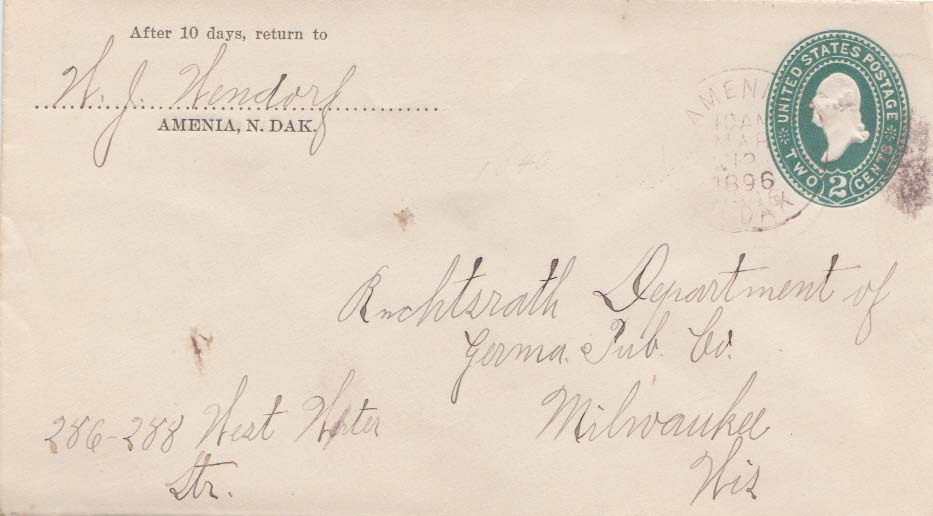 After 10 days, return to
W. J. Wendorf
AMENIA, N. DAK.
UNITED STATES POSTAGE
TWO 2 CENTS
AMENIA
10AM
MAR
12
1896
DAK
Rechtsrath Department of
Germa. Pub. Co.
Milwaukee
Wis
286-288 West Water
Str.